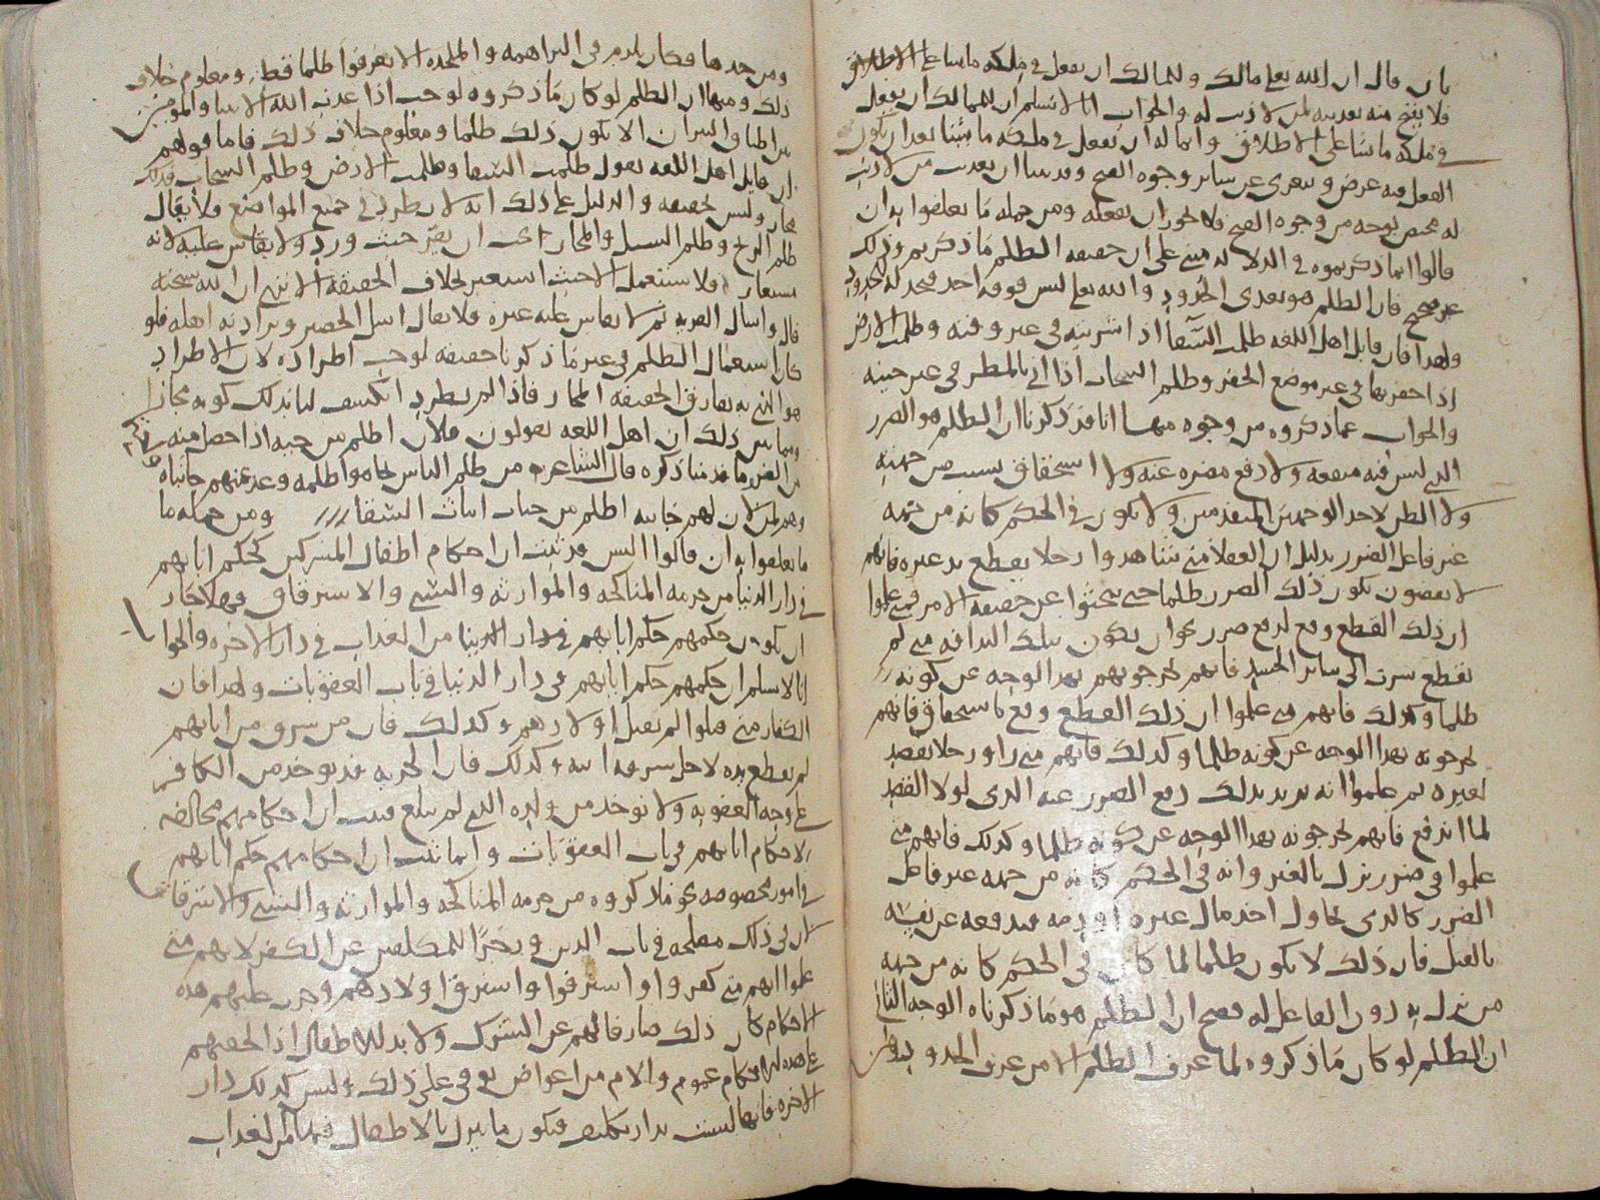 بان قال ان الله تعلى مالك وللمالك ان يفعل في ملكه ماشا على الاطلاق
فلا يقبح منه تعذيبه لمن لا ذنب له والجواب انا لا نسلم ان للمالك ان يفعل
في ملكه ماشا على الاطلاق وانما له ان يفعل في ملكه ما يشا بعد ان يكون
الفعل فيه غرض ويتعرى عن ساير وجوه القبح وقد بينا ان تعذيب من لا ذنب
له مختص بوجه من وجوه القبح فلا يجوز ان يفعله ومن جمله ما تعلقوا به ان
قالوا انما ذكرتموه في الدلاله مبني على ان حقيقه الظلم ما ذكرتم وذلك
غير صحيح فان الظلم هو تعدي الحدود والله تعلى ليس فوقه احد فيحد له الحدود
ولهذا فان قايل اهل اللغه ظلمت السقا اذا شربته في غير وقته وظلمت الارض
اذا حفرتها في غير موضع الحفر وظلم السحاب اذا اتى بالمطر في غير حينه
والجواب عما ذكروه من وجوه منها انا قد ذكرنا ان الظلم هو الضرر
الذي ليس فيه منفعه ولا دفع مضره عنه ولا استحقاق بسبب من جهته
ولا الظن لاحد الوجهين المتقدمين ولا يكون في الحكم كانه من جهه
غير فاعل الضرر بدليل ان العقلا متى شاهدوا رجلا يقطع يد غيره فانهم
لا يقضون بكون ذلك الضرر ظلما حتى يبحثوا عن حقيقه الامر فمتى علموا
ان ذلك القطع وقع لدفع ضرر نحو ان يكون بتلك اليد افه متى لم
تقطع سرت الى ساير الجسد فانهم يخرجونهم بهذا الوجه عن كونه
ظلما وكذلك فانهم متى علموا ان ذلك القطع وقع باستحقاق فانهم
يخرجونه بهذا الوجه عن كونه ظلما وكذلك فانهم متى راوا رجلا يفصد
لغيره ثم علموا انه يريد بذلك دفع الضرر عنه الذي لولا الفصد
لما اندفع فانهم يخرجونه بهذا الوجه عن كونه ظلما وكذلك فانهم متى
علموا في ضرر نزل بالغير وانه في الحكم كانه من جهه غير فاعل
الضرر كالذي يحاول اخذ مال غيره او دمه فيدفعه عن نفسه
بالقتل فان ذلك لا يكون ظلما لما كان في الحكم كانه من جهه
من نزل به دون الفاعل له فصح ان الظلم هو ما ذكرناه الوجه الثاني
ان الظلم لو كان ما ذكروه لما عرف الظلم الا من عرف الحدود
ومن حدها فكان يلزم في البراهمه والملحده الا يعرفوا ظلما قط ومعلوم خلاف
ذلك ومنها ان الظلم لو كان ما ذكروه لوجب اذا عذب الله الانبيا والمومنين
الا يكون ذلك ظلما ومعلوم خلاف ذلك فاما قولهم
ان قايل اهل اللغه يقول ظلمت السقا وظلمت الارض وظلم السحاب فذلك
مجاز وليس حقيقه والدليل على ذلك انه لا يطرد في جميع المواضع فلا يقال
ظلم وظلم السيل والمجاز حيث ورد ولا يقاس عليه لانه
فلا يستعمل الا حيث استعير بخلاف الحقيقه الا ترى ان الله سبحنه
قال واسال القريه ثم لا يقاس عليه غيره فلا يقال اسل الحصير ويراد به اهله فلو
كان استعمال الظلم في غير ما ذكرنا حقيقه لوجب اطراده لان الاطراد
هو الذي به يفارق الحقيقه المجاز فاذا لم يطرد انكشف لنا بذلك كونه مجازا
ذلك ان اهل اللغه يقولون فلان اظلم من حيه اذا حصل منه
من الضرر ما قدمنا ذكره قال الشاعر من ظلم الناس تحاموا ظلمه وعز عنهم جانباه
وهم لمن لان لهم جانبه اظلم من حيات انباث السفا ومن جمله ما
تعلقوا به ان قالوا اليس قد ثبت ان احكام اطفال المشركين كحكم ابايهم
في دار الدنيا من حرمه المناكحه والموارثه والسبي والاسترقاق فهلا جاز
ان يكون حكمهم حكم ابايهم في دار الدنيا من العذاب في دار الاخره والجوا
انا لا نسلم ان حكمهم حكم ابايهم في دار الدنيا في باب العقوبات ولهذا فان
الكفار متى قتلوا لم نقتل اولادهم وكذلك فان من سرق من ابايهم
لم يقطع يده لاجل سرقه ابيه وكذلك فان الجزيه قد توخذ من الكافر
على وجه العقوبه ولا توخذ من ولده الذي لم يبلغ فثبت ان احكامهم مخالفه
لاحكام ابايهم في باب العقوبات وانما ثبت ان احكامهم حكم ابايهم
في امور مخصوصه نحو ما ذكروه من حرمه المناكحه والموارثه والسبي والاسترقاق
لان في ذلك مصلحه في باب الدين وزجرا للمكلفين عن الكفر لانهم متى
علموا انهم متى كفروا او استرقوا واسترق اولادهم وجرت عليهم هذه
الاحكام كان ذلك صارفا لهم عن الشرك ولا بد للاطفال اذا لحقتهم
على هذه الاحكام غموم والام من اعواض توفي على ذلك وليس كذلك دار
الاخره فانها ليست بدار تكليف فيكون ما ينزل بالاطفال فيها من العذاب